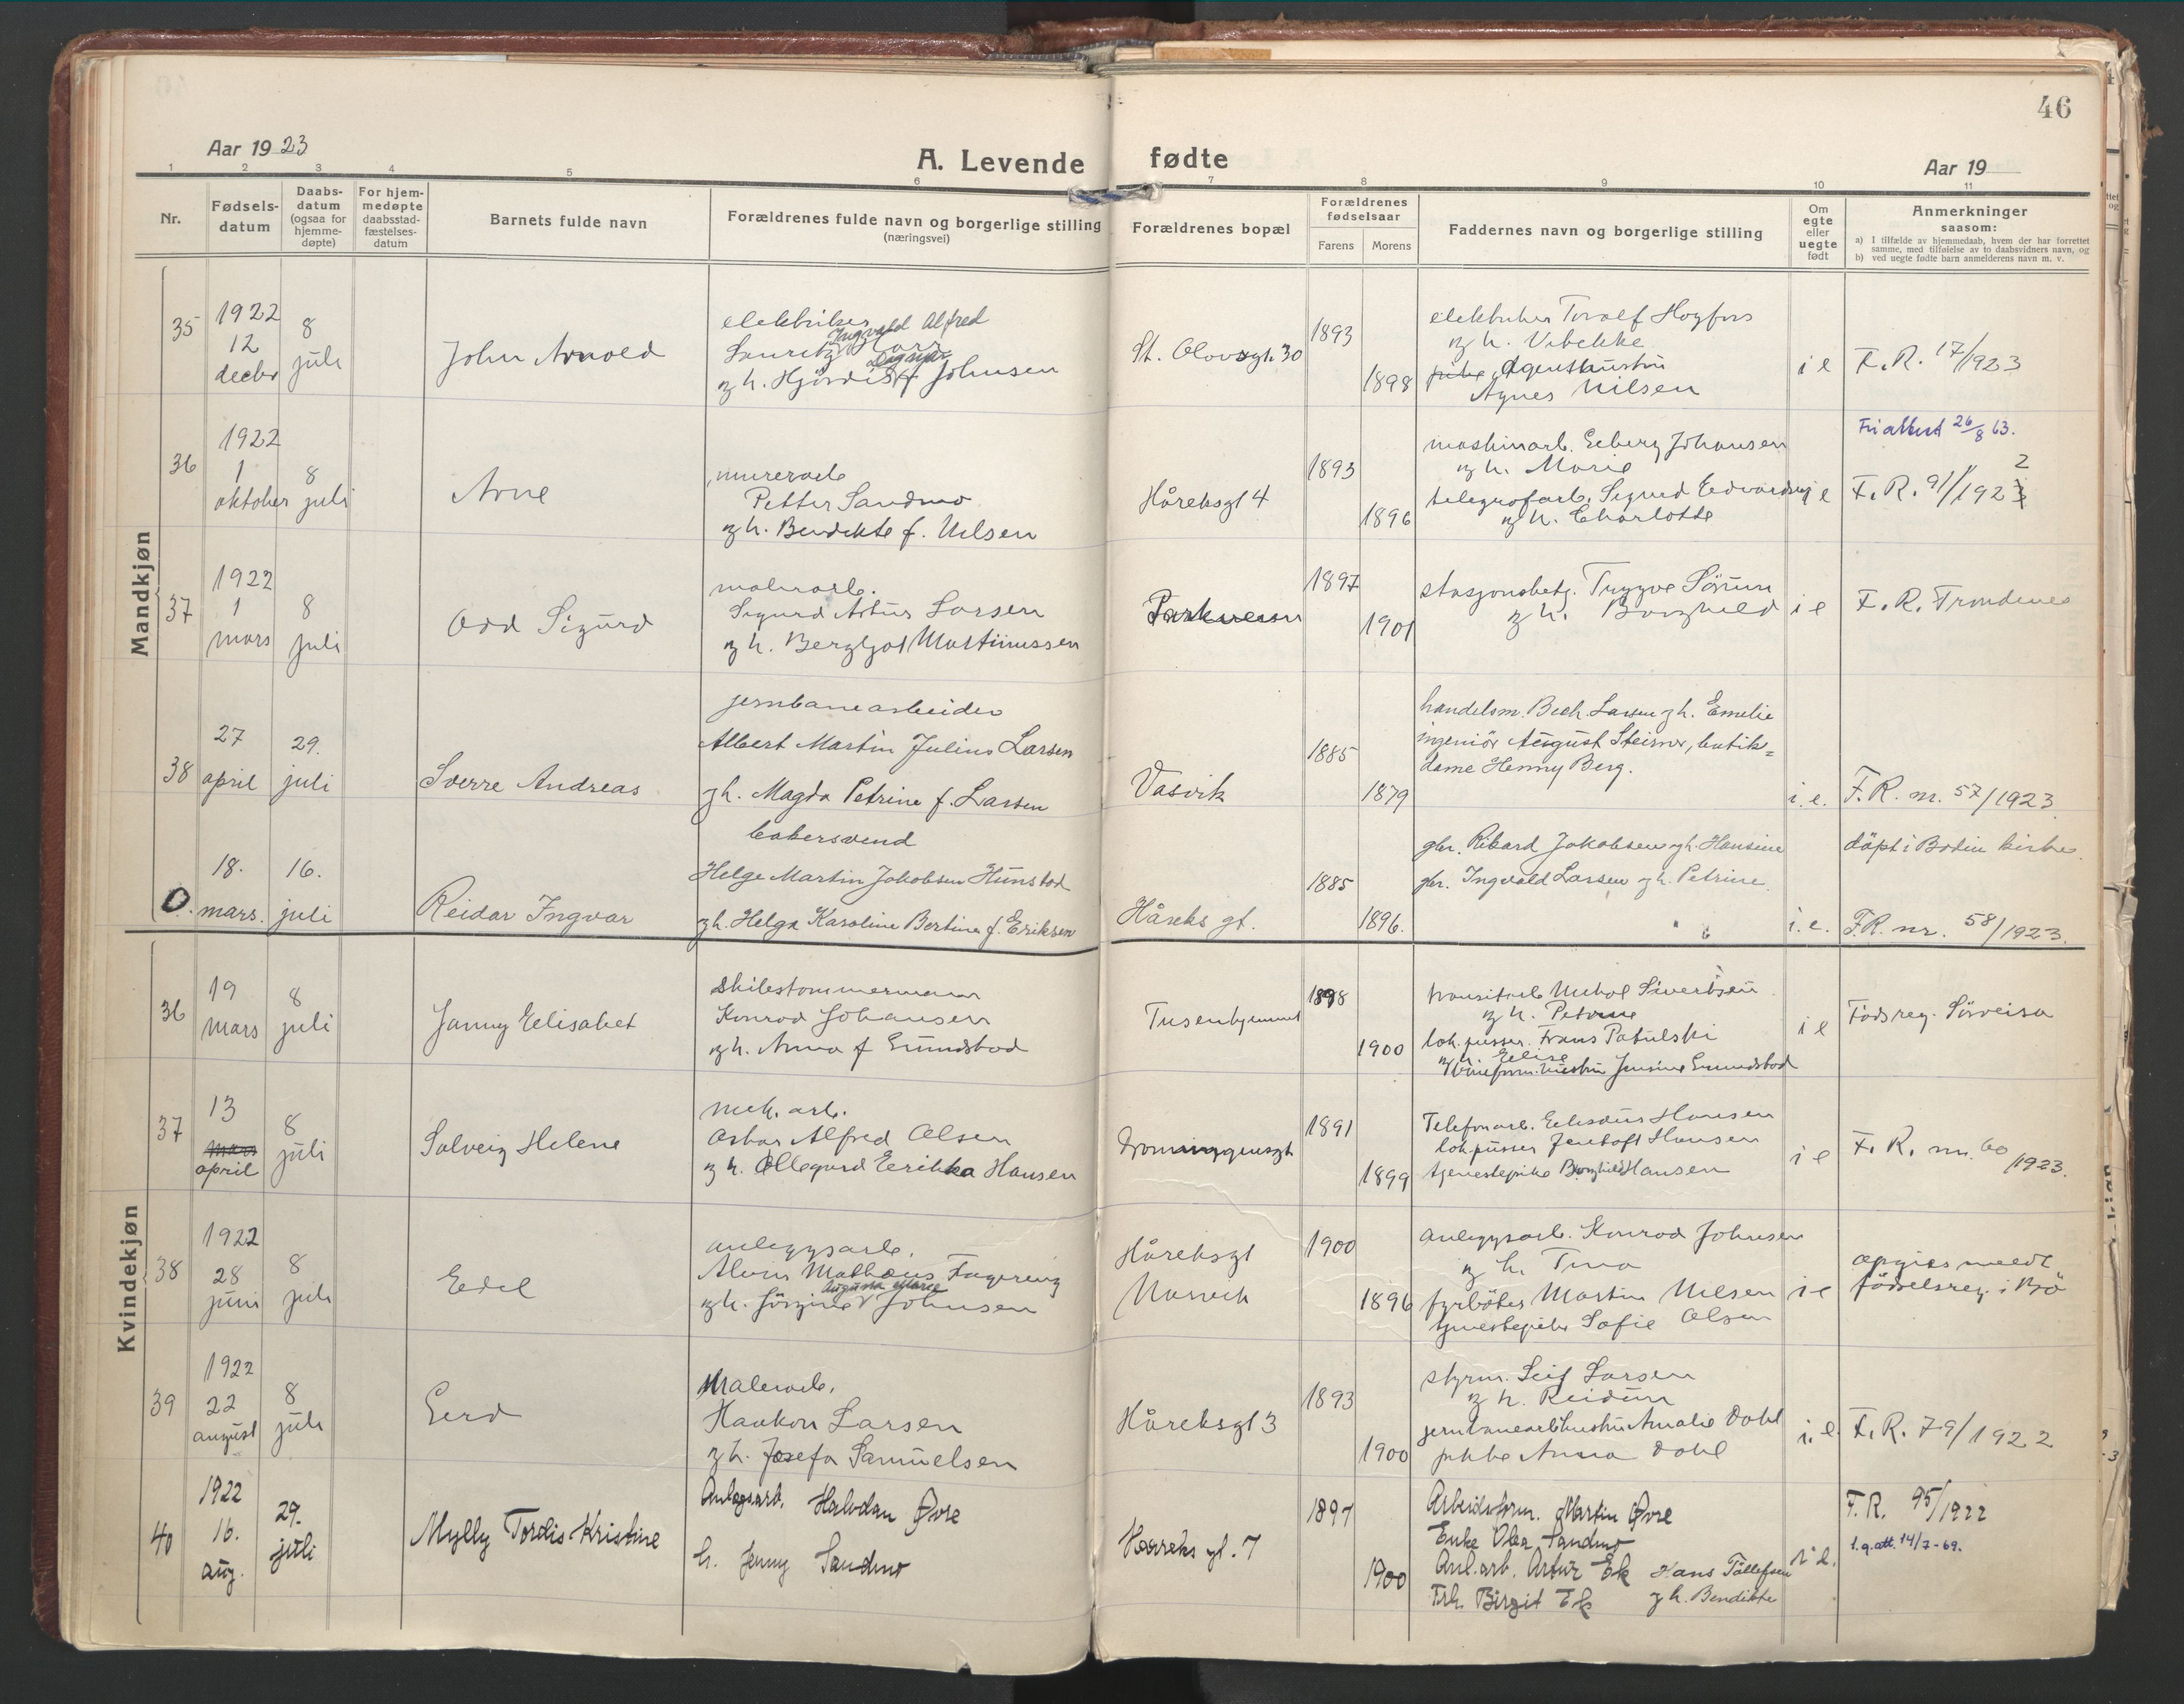 46
Aar 1923
A. Levende fødte
Aar 19
1 2 3 4 5 6 7 8 9 10 11
Nr.
Fødsels-
datum
Daabs-
datum
(ogsaa for
hjemme-
døpte)
For hjem-
medøpte
daabsstad-
fæstelses-
datum
Barnets fulde navn
Forældrenes fulde navn og borgerlige stilling
(næringsvei)
Forældrenes bopæl
Forældrenes
fødselsaar
Farens Morens
Faddernes navn og borgerlige stilling
Om
egte
eller
uegte
født
Anmerkninger
saasom:
a) I tilfælde av hjemmedaab, hvem der har forrettet
samme, med tilføielse av to daabsvidners navn, og
b) ved uegte fødte barn anmelderens navn m. v.
Mandkjøn
35
1922
12
decbr
8
juli
John Arnold
elektriker
Ingvald Alfred
Lauritz
Dagmar
og h. Hjördis f Johnsen
St. Olavsgt. 30
1893
1898
elektriker Toralf Hogfors
og h. Vibekke
Agnes Nilsen
i e
F. R. 17/1923
36
1922
1
oktober
8
juli
Arne
murerarb
Petter Sandmo
og h. Bendikte f. Nilsen
Håreksgt 4
1893
1896
maskinarb. Edberg Johansen
og h. Marie
telegrafarb. Sigurd Edvardsen
og h. Charlotte
i e
Fri attest 26/8 63.
F. R. 91/1922
37
1922
1
mars
8
juli
Odd Sigurd
malerarb.
Sigurd Artur Larsen
og h. Bergljot Martinussen
Parkveien
1897
1901
stasjonsbetj. Trygve Sörum
og h. Borghild
i e
F. R. Trondenes
38
27
april
29.
juli
Sverre Andreas
jernbanearbeider
Albert Martin Julius Larsen
g h. Magda Petrine f. Larsen
Vasvik
1885
1879
handelsm. Bech Larsen g h. Emelie
ingeniör August Steisner, butik=
dame Henny Berg.
i. e.
F. R. nr. 57/1923
0.
18.
mars.
16.
juli
Reidar Ingvar
bakersvend
Helge Martin Jakobsen Hunstad
g h. Helga Karoline Bertine f. Eriksen
Håreks gt.
1885
1896.
gbr. Rikard Jakobsen g h. Hansine
gbr. Ingvald Larsen g h. Petrine.
i. e.
döpt i Bodin kirke.
F.R. nr. 58/1923.
Kvindekjøn
36
19
mars
8
juli
Janny Elisabet
skibstömmermann
Konrad Johansen
og h. Anna f Grundstad
Tusenhjemmet
1898
1900
og h. Petrine
lok. pusser. Frans Patulski
og h. Elise
Jensine Grundstad
i e
Födsreg. Sörreisa
37
13
mars
april
8
juli
Solveig Helene
mek. arb.
Oskar Alfred Olsen
og h. Ollegard Erikka Hansen
Dronninggensgt
1891
1899
Telefonarb. Hansen
lok.pusser Jentoft Hansen
tjenestepike Borghild Hansen
i e
F. R. nr. 60/1923.
38
1922
28
juni
8
juli
Edel
anleggsarb.
Alvin Mathæus Fagereng
Augusta Marie
og h. Jörgine Johnsen
Håreksgt
Narvik
1900
1896
anleggsarb. Konrad Johnsen
og h. Tina
fyrböter Martin Nilsen
tjenestepike Sofie Olsen
i e
opgies meldt
födselsreg. i Bö
39
1922
22
august
8
juli
Gerd
Malerarb.
Haakon Larsen
og h. Josefa Samuelsen
Håreksgt 3
1893
1900
styrm. Leif Larsen
og h. Reidun
jernbanearb.hustru Amalie Dahl
pikke Anna Dahl
i. e.
F. R. 79/1922
40
1922
16.
aug.
29.
juli
Mylly Tordis Kristine
Anlegsarb. Halvdan Øvre
h. Jenny Sandmo
Haareks gt. 7
1897
1900
Arbeidsform. Martin Øvre
Enke Olea Sandmo
Anl.arb. Artur Ek Hans Tållefsen
Frk. Birgit Ek g h. Bendikte
i e.
F. R. 95/1922
l.g.att. 14/7-69.